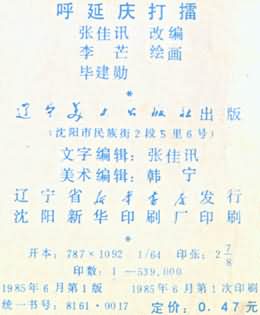 呼延庆打擂
张佳讯 改编
李芒 绘画
毕建勋
*
辽宁美术出版社出版
(沈阳市民族街2段5里6号)
文字编辑:张佳讯
美术编辑:韩宁
辽宁省新华书店发行
沈阳新华印刷厂印刷
*
开本:787×1092 1/64 印张:2 7/8
印数:1—539,000
1985年6月第1版 1985年6月第1次印刷
统一书号:8161·0017 定价:0.47元